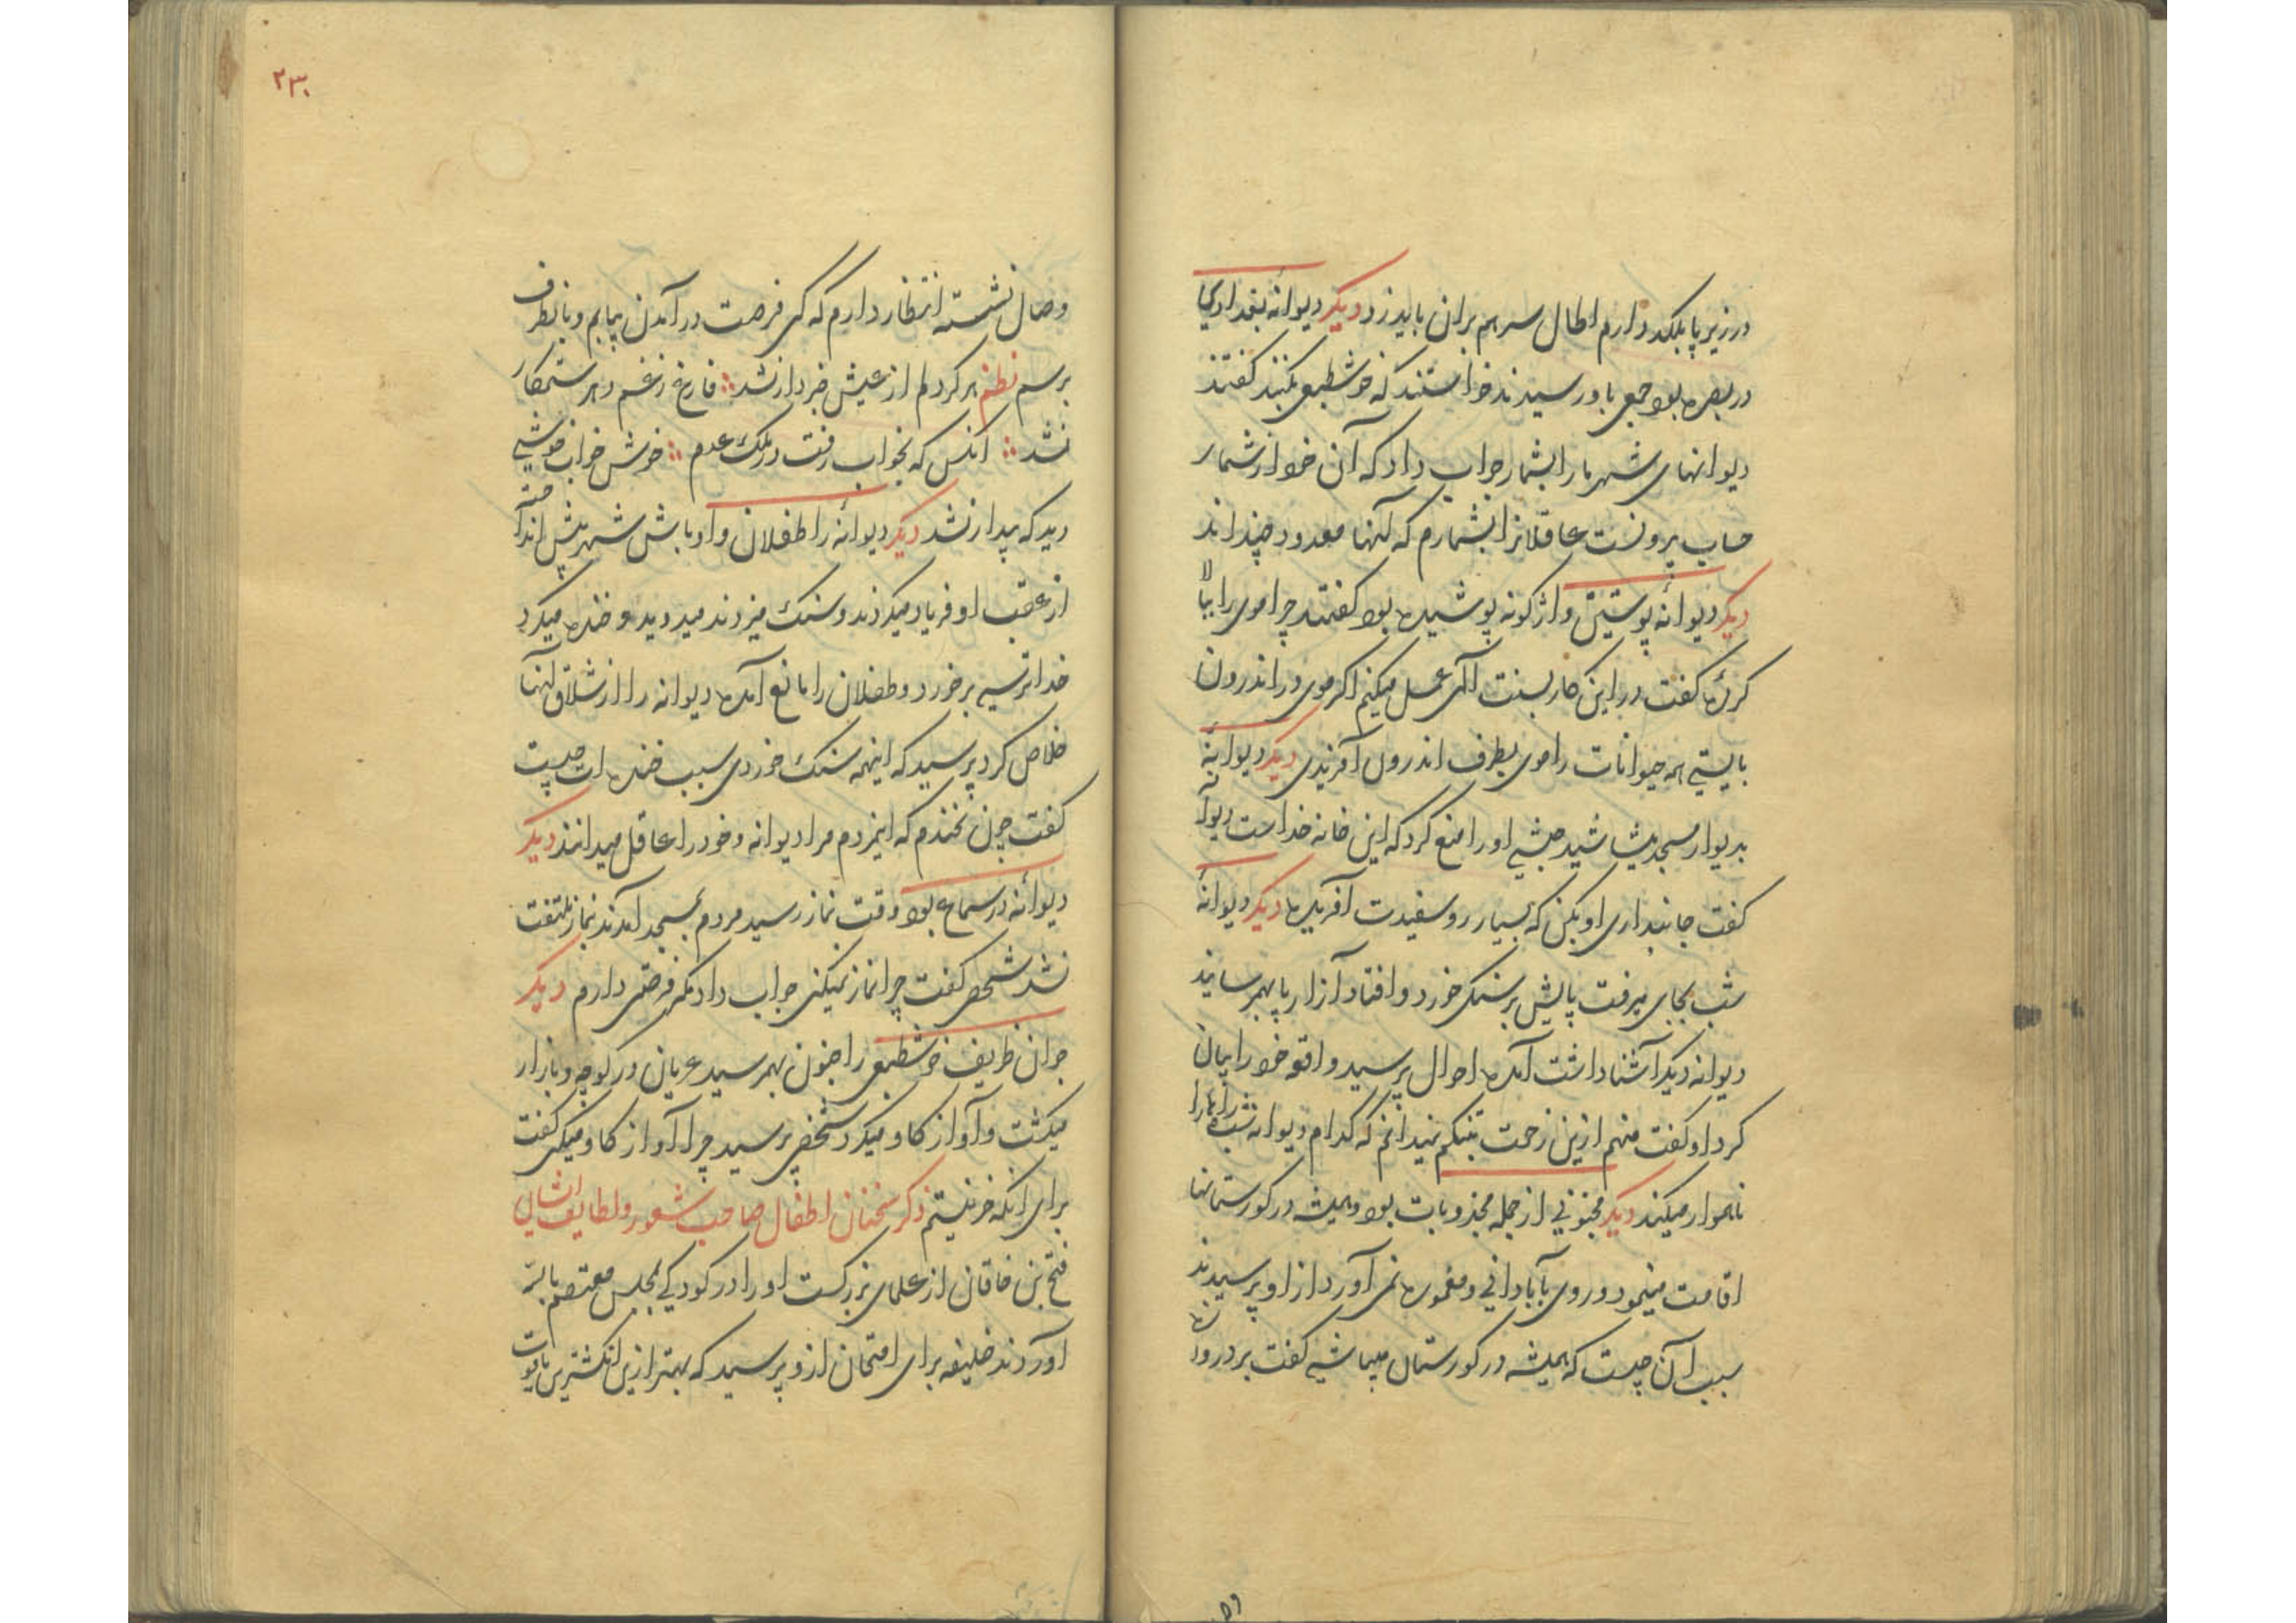 در زیر پا بلکد دارم اطال سر هم بران باید زد دیکر دیوانهٔ بغدادی
در بصره بود جمعی باو رسیدند خواستند که خوشطبعی بکنند کفتند
دیوانهای شهر ما را بشمار جواب داد که آن خود از شمار
حساب بیرونست عاقلانرا بشمارم که آنها معدود چند اند
دیکر دیوانهٔ پوستین واژکونه پوشیده بود کفتند چرا موی را ببالا
کردهٔ کفت در این کار بسنت آلهی عمل میکنم اکر موی در اندرون
بایستی همه حیوانات را موی بطرف اندرون آفریدی دیکر دیوانهٔ
بدیوار مسجد میشاشید حبشی او را منع کرد که این خانه خداست دیوانه
کفت جانبداری او بکن که بسیار رو سفیدت آفریده دیکر دیوانهٔ
شب بجای میرفت پایش بر سنکی خورد و افتاد آزار پا بهمرسانید
دیوانه دیکر آشنا داشت آمده احوال پرسید واقعه خود را بیان
کرد او کفت منهم ازین زحمت بتنکم نمیدانم که کدام دیوانه شب راهها را
ناهموار میکند دیکر مجنونی از جمله مجذوبات بود و همیشه در کورستانها
اقامت مینمود و روی بآبادانی و معموره نمی آورد از او پرسیدند
سبب آن چیست که همیشه در کورستان میباشی کفت بر در
۲۳۰
وصال نشسته انتظار دارم که کی فرصت در آمدن بیابم و بانطرف
برسم نظم هر کز دلم از عیش خبردار نشد فارغ ز غم دهر ستمکار
نشد آنکس که بخواب رفت در ملک عدم خوش خواب خوشی
دید که بیدار نشد دیکر دیوانهٔ را طفلان و اوباش شهر پیش انداخته
از عقب او فریاد میکردند و سنک میزدند میدوید و خنده میکرد
خدا ترسی برخورد و طفلان را مانع آمده دیوانه را از شلتاق آنها
خلاص کرد پرسید که اینهمه سنک خوردی سبب خنده ات چیست
کفت چون نخندم که اینمردم مرا دیوانه و خود را عاقل میدانند دیکر
دیوانهٔ در سماع بود وقت نماز رسید مردم بمسجد آمدند بنماز ملتفت
نشد شخصی کفت چرا نماز نمیکنی جواب داد مکر فرضی دارم دیکر
جوان ظریف خوشطبعی را جنون بهمرسید عریان در کوچه و بازار
میکشت و آواز کاو میکرد شخصی پرسید چرا آواز کاو میکنی کفت
برای آنکه خر نیستم ذکر سخنان اطفال صاحب شعور و لطایف ایشان
فتح بن خاقان از علمای بزرکست او را در کودکی بمجلس معتصم بالله
آوردند خلیفه برای امتحان ازو پرسید که بهتر ازین انکشترین یاقوت